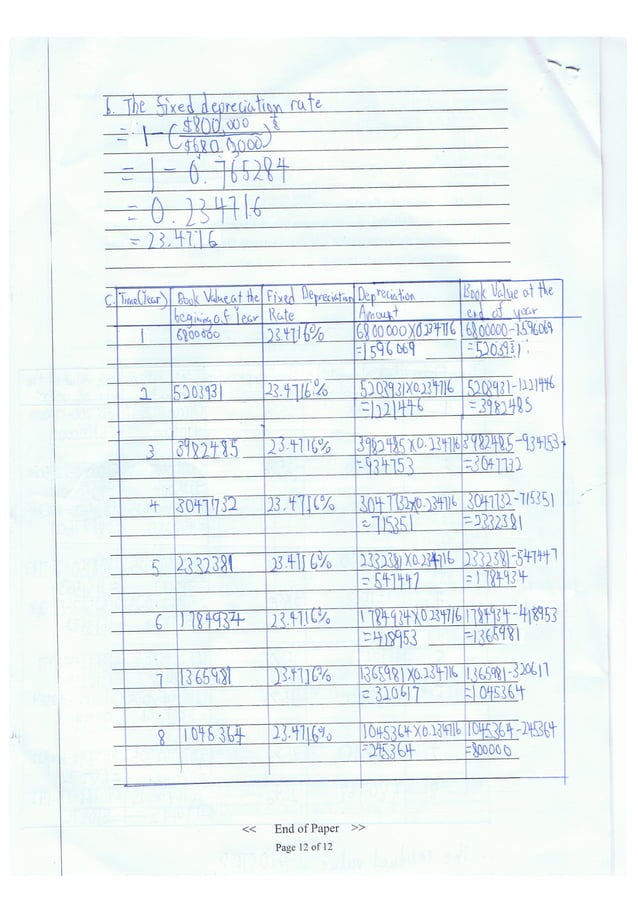 b. The fixed depreciation rate
= 1-($800,000/$6800000)^1/8
= 1-0.765284
= 0.234716
= 23.4716
c. Time(Year) Book Value at the Fixed Depreciation Depreciation Book Value at the
begining of Year Rate Amount end of year
1 6800000 23.4716% 6800000X0.234716 6800000-1596069
=1596069 =5203931
2 5203931 23.4716% 5203931X0.234716 5203931-1221446
=1221446 =3982485
3 3982485 23.4716% 3982485X0.234716 3982485-934753
=934753 =3047732
4 3047732 23.4716% 3047732X0.234716 3047732-715351
=715351 =2332381
5 2332381 23.4716% 2332381X0.234716 2332381-547447
=547447 =1784934
6 1784934 23.4716% 1784934X0.234716 1784934-418953
=418953 =1365981
7 1365981 23.4716% 1365981X0.234716 1365981-320617
=320617 =1045364
8 1045364 23.4716% 1045364X0.234716 1045364-245364
=245364 =800000
<< End of Paper >>
Page 12 of 12